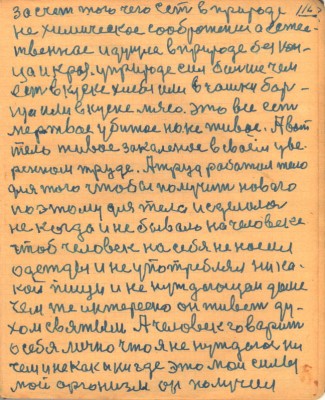 116
за счет того чего есть в природе
не химическое соображение а есте-
ственное идущее в природе без кон-
ца и края. у природе сил больше чем
есть в куске хлеба или в чашки бор-
ща или в куске мясо. это все есть
мертвое убитое но не живое. А вот
тело живое закаленое в своем уве-
ренном труде. А труд работал тело
для того чтобы получит нового
поэтому для тела и сделалос
не когда и не бывало на человеке
чтоб человек на себя не носил
одежды и не употреблял ника-
кой пищи и не нуждающая даже
чем же интересно он живет ду-
хом святым А человек говорит
о себя лично что я не нуждаюс ни
чем и не как и ни где это мои силы
мой организм он получил